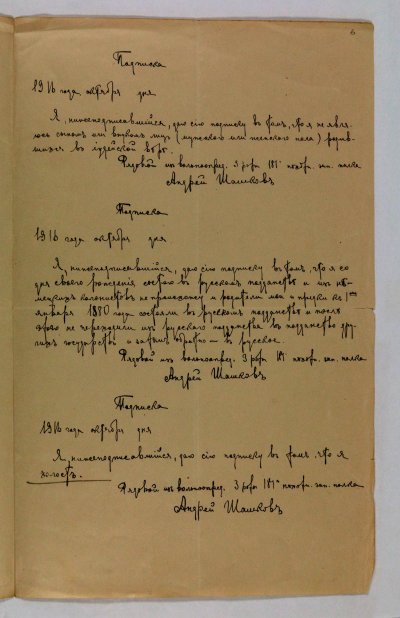 6
Подписка
1916 года октября дня
Я, нижеподписавшійся, даю сію подписку въ томъ, что я не явля-
юсь сыномъ или внукомъ лицъ (мужского или женскаго пола) родив-
шихся въ іудейской вѣрѣ.
Рядовой изъ вольноопред. 3 роты 181 пѣхотн. зап. полка
Андрей Шашковъ
Подписка
1916 года октября дня
Я, нижеподписавшійся, даю сію подписку въ томъ, что я со
дня своего рожденія состою въ русскомъ подданствѣ и изъ нѣ-
мецкихъ колонистовъ не происхожу и родители мои и предки къ 1му
января 1880 года состояли въ русскомъ подданствѣ и послѣ
этого не переходили изъ русскаго подданства въ подданство дру-
гихъ государствъ и затѣмъ обратно – въ русское.
Рядовой изъ вольноопред. 3 роты 181 пѣхотн. зап. полка
Андрей Шашковъ
Подписка
1916 года октября дня
Я, нижеподписавшійся, даю сію подписку въ томъ, что я
холостъ.
Рядовой изъ вольноопред. 3 роты 181го пѣхотн. зап. полка
Андрей Шашковъ